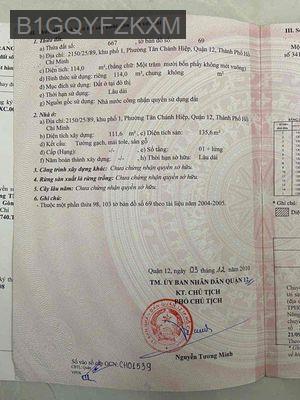 B1GQYFZKYM
1. Thửa đất:
a) Thửa đất số: 667 , tờ bản đồ số: 69
b) Địa chỉ: 2150/25/89, khu phố 1, Phường Tân Chánh Hiệp, Quận 12, Thành Phố Hồ
Chí Minh
c) Diện tích: 114,0 m², (bằng chữ: Một trăm mười bốn phẩy không mét vuông)
d) Hình thức sử dụng: riêng 114,0 m², chung Không m²
đ) Mục đích sử dụng: Đất ở tại đô thị
e) Thời hạn sử dụng: Lâu dài
g) Nguồn gốc sử dụng: Nhà nước công nhận quyền sử dụng đất
2. Nhà ở:
a) Địa chỉ: 2150/25/89, khu phố 1, Phường Tân Chánh Hiệp, Quận 12, Thành Phố Hồ
Chí Minh
b) Diện tích xây dựng: 111,6 m², c) Diện tích sàn: 135,6 m²
d) Kết cấu: Tường gạch, mái tole, sàn gỗ
đ) Cấp (Hạng): -/- e) Số tầng: 01 + lửng
f) Năm hoàn thành xây dựng: -/- h) Thời hạn sở hữu: Lâu dài
3. Công trình xây dựng khác: Chưa chứng nhận quyền sở hữu.
4. Rừng sản xuất là rừng trồng: Chưa chứng nhận quyền sở hữu.
5. Cây lâu năm: Chưa chứng nhận quyền sở hữu.
6. Ghi chú:
- Thuộc một phần thửa 98, 103 tờ bản đồ số 69 theo tài liệu năm 2004-2005.
Quận 12, ngày 03 tháng 12 năm 2010
TM. ỦY BAN NHÂN DÂN QUẬN 12
KT. CHỦ TỊCH
PHÓ CHỦ TỊCH
Nguyễn Tương Minh
Số vào sổ cấp GCN: CH01539
III. S